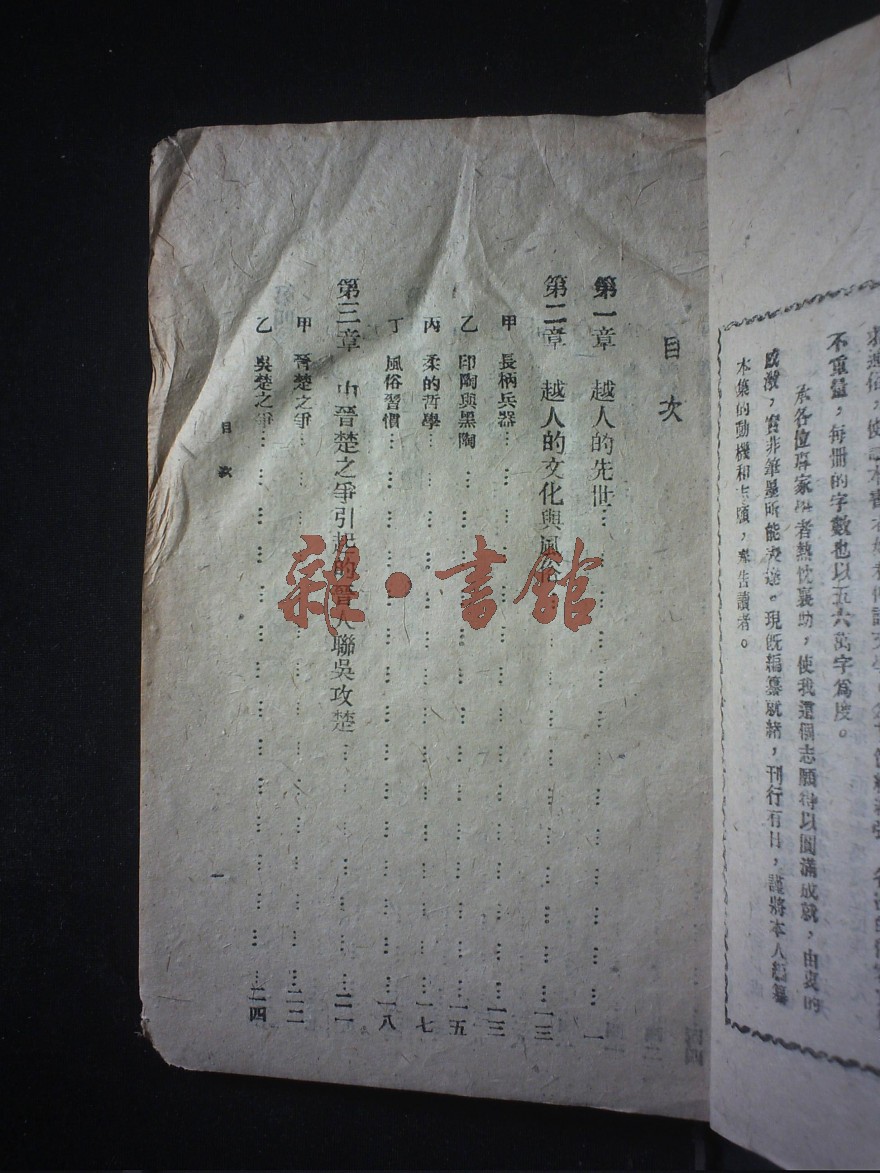 求通俗，使
不重量，每冊的字數也以五六萬字爲度。
承各位專家學者熱忱襄助，使我這個志願得以圓滿成就，由衷的
感激，實非筆墨所能表達。現既編纂就緒，刊行有日，謹將本人編纂
本集的動機和志願，奉告讀者。
目次
第一章 越人的先世… … … … … … … … … … … 一
第二章 越人的文化與風俗… … … … … … … … 一三
甲 長柄兵器… … … … … … … … … … … … 一三
乙 印陶與黑陶 … … … … … … … … … … … 一五
丙 柔的哲學… … … … … … … … … … … … 一七
丁 風俗習慣… … … … … … … … … … … … 一八
第三章 由晉楚之爭引起的晉人聯吳攻楚… … … … … … 二一
甲 晉楚之爭… … … … … … … … … … … … 二二
乙 吳楚之爭… … … … … … … … … … … … 二四
目次
一
雜·書館